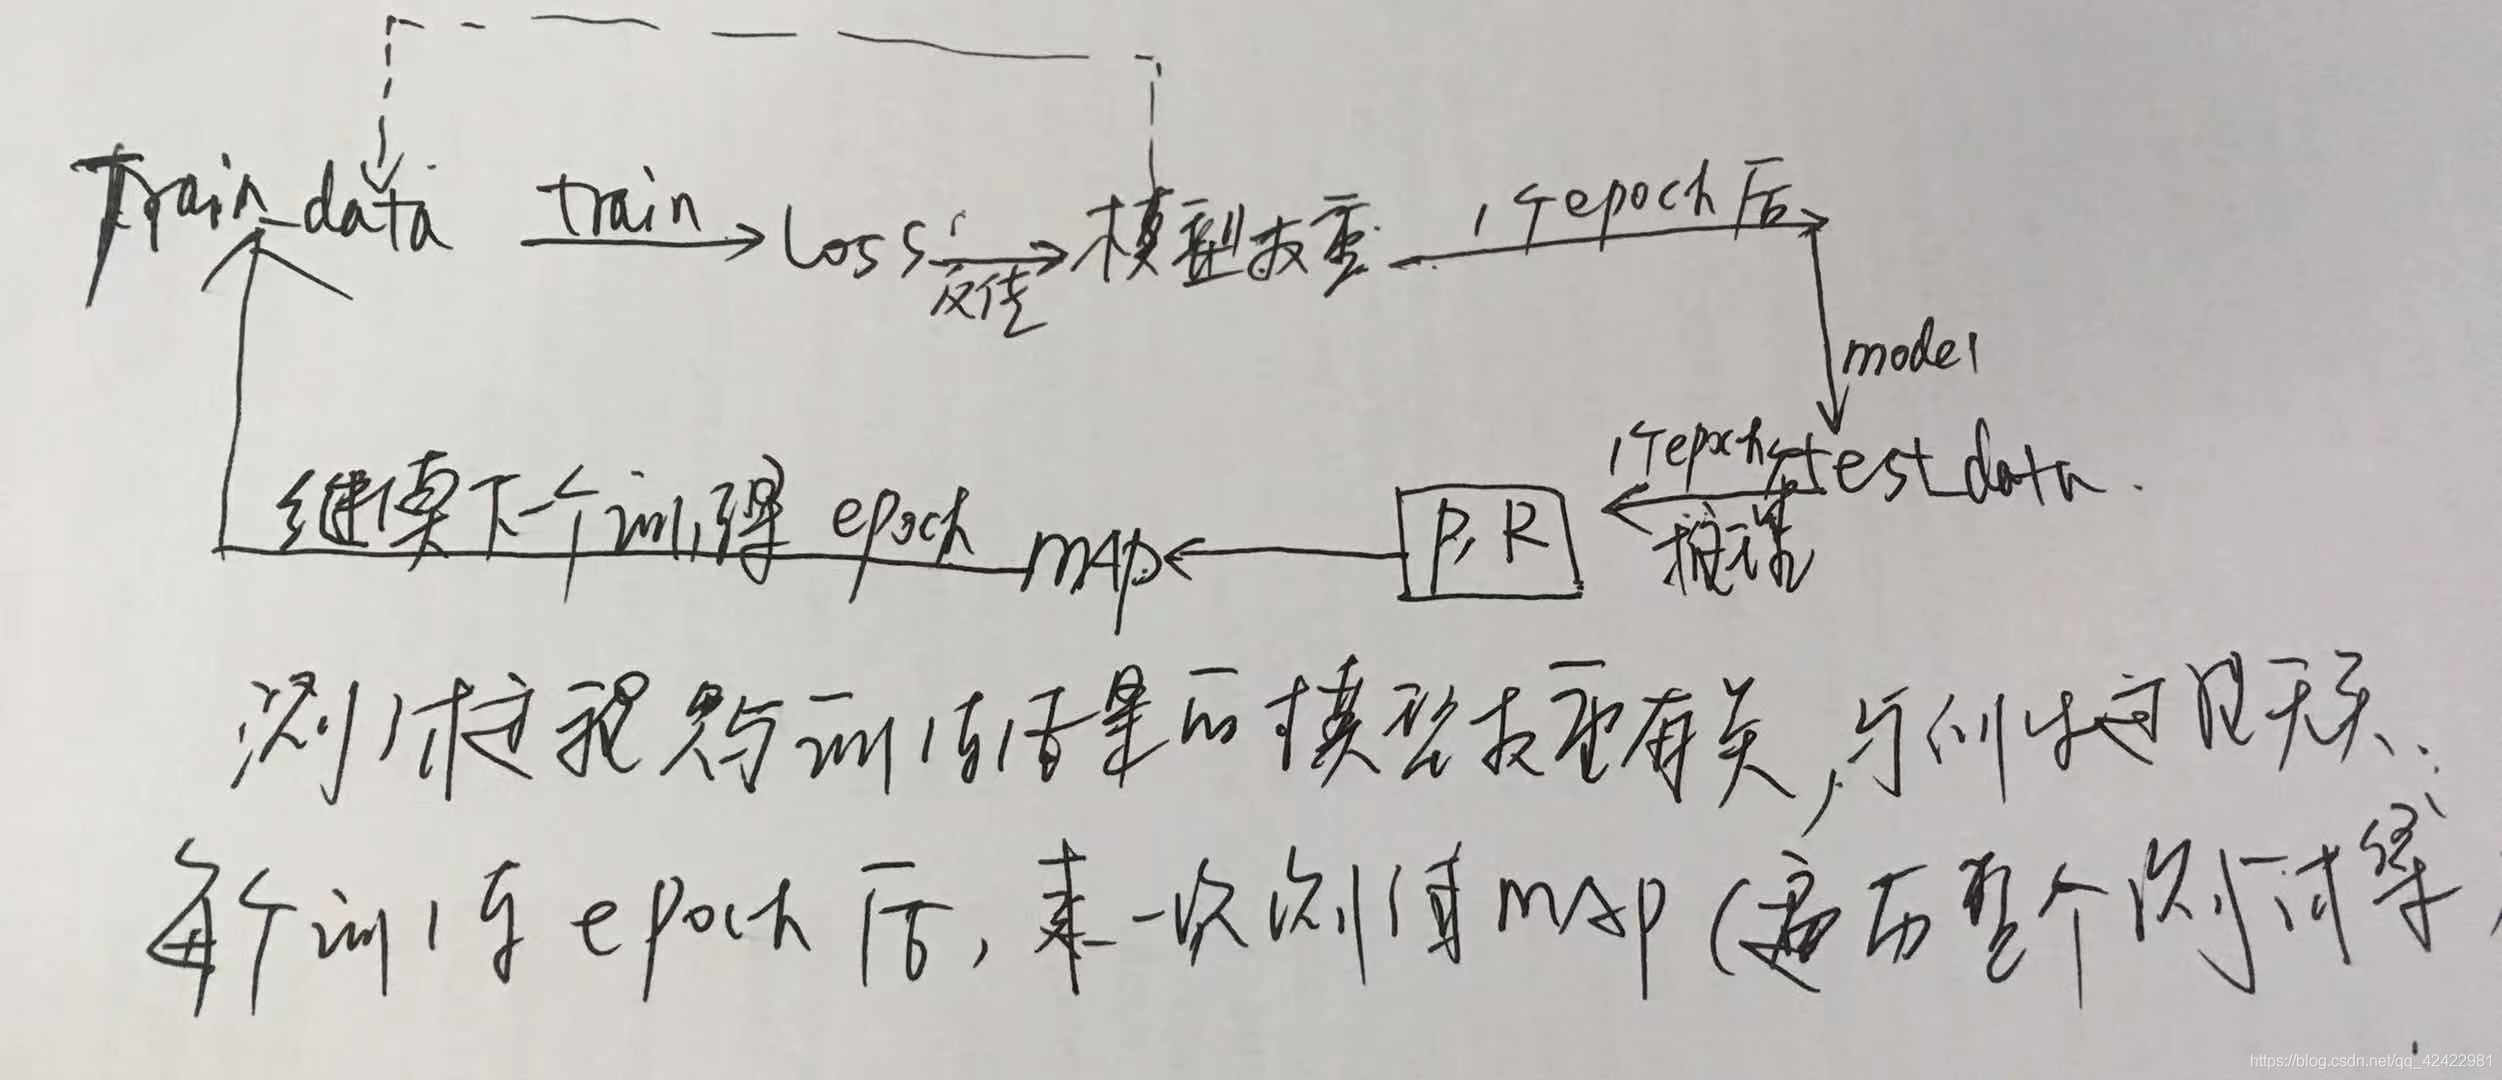 Train_data train loss 反传 模型权重 1个epoch后
model
1个epoch test_data
推理
P, R
mAP
继续下个训练 epoch
测试 只与训练结果的模型权重有关, 与 过程无关.
每个训练epoch后, 来一次测试mAP (遍历整个测试集
https://blog.csdn.net/qq_42422981